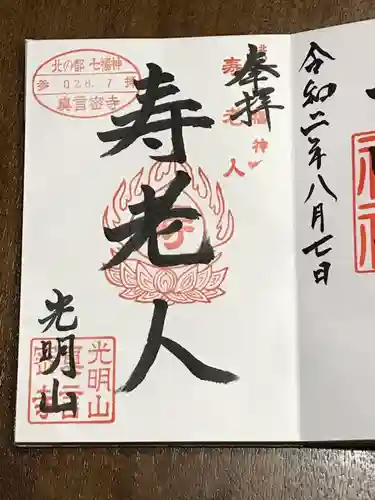 令和二年八月七日
奉拝
北の都 七福神
寿老人
寿老人
北の都 七福神
参 028.8.7 拝
真言密寺
光明山
光明山
真言密寺